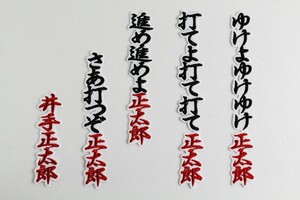 ゆけよゆけゆけ正太郎
打てよ打て打て正太郎
進め進めよ正太郎
さあ打つぞ正太郎
井手正太郎